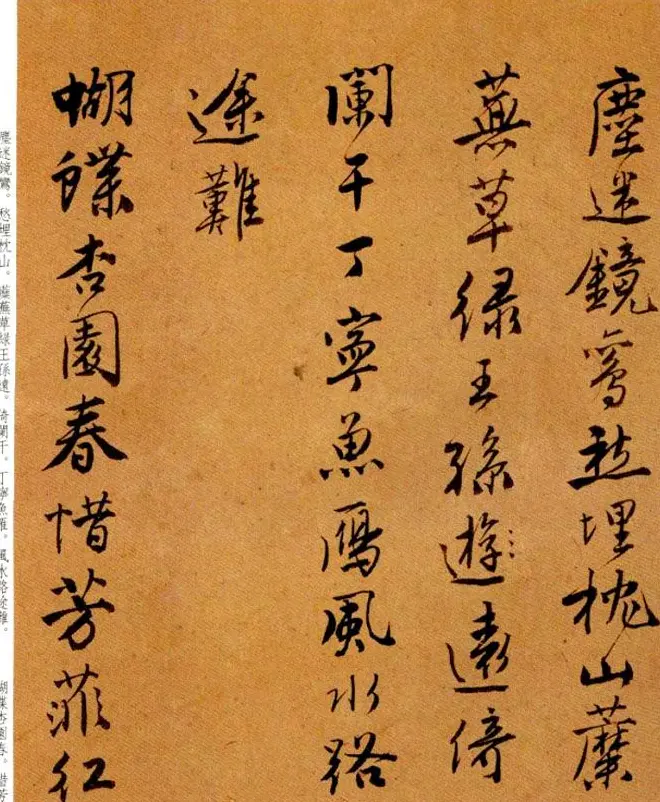 塵迷鏡鸞愁埋枕山蘼
蕪草緑王孫遊遠倚
闌干丁寧魚鴈風水路
途難
蝴蝶杏園春惜芳菲紅
塵迷鏡鸞。愁埋枕山。蘼蕪草綠王孫遠。倚闌干。丁寧魚雁。風水路途難。 胡蝶杏園春。惜芳